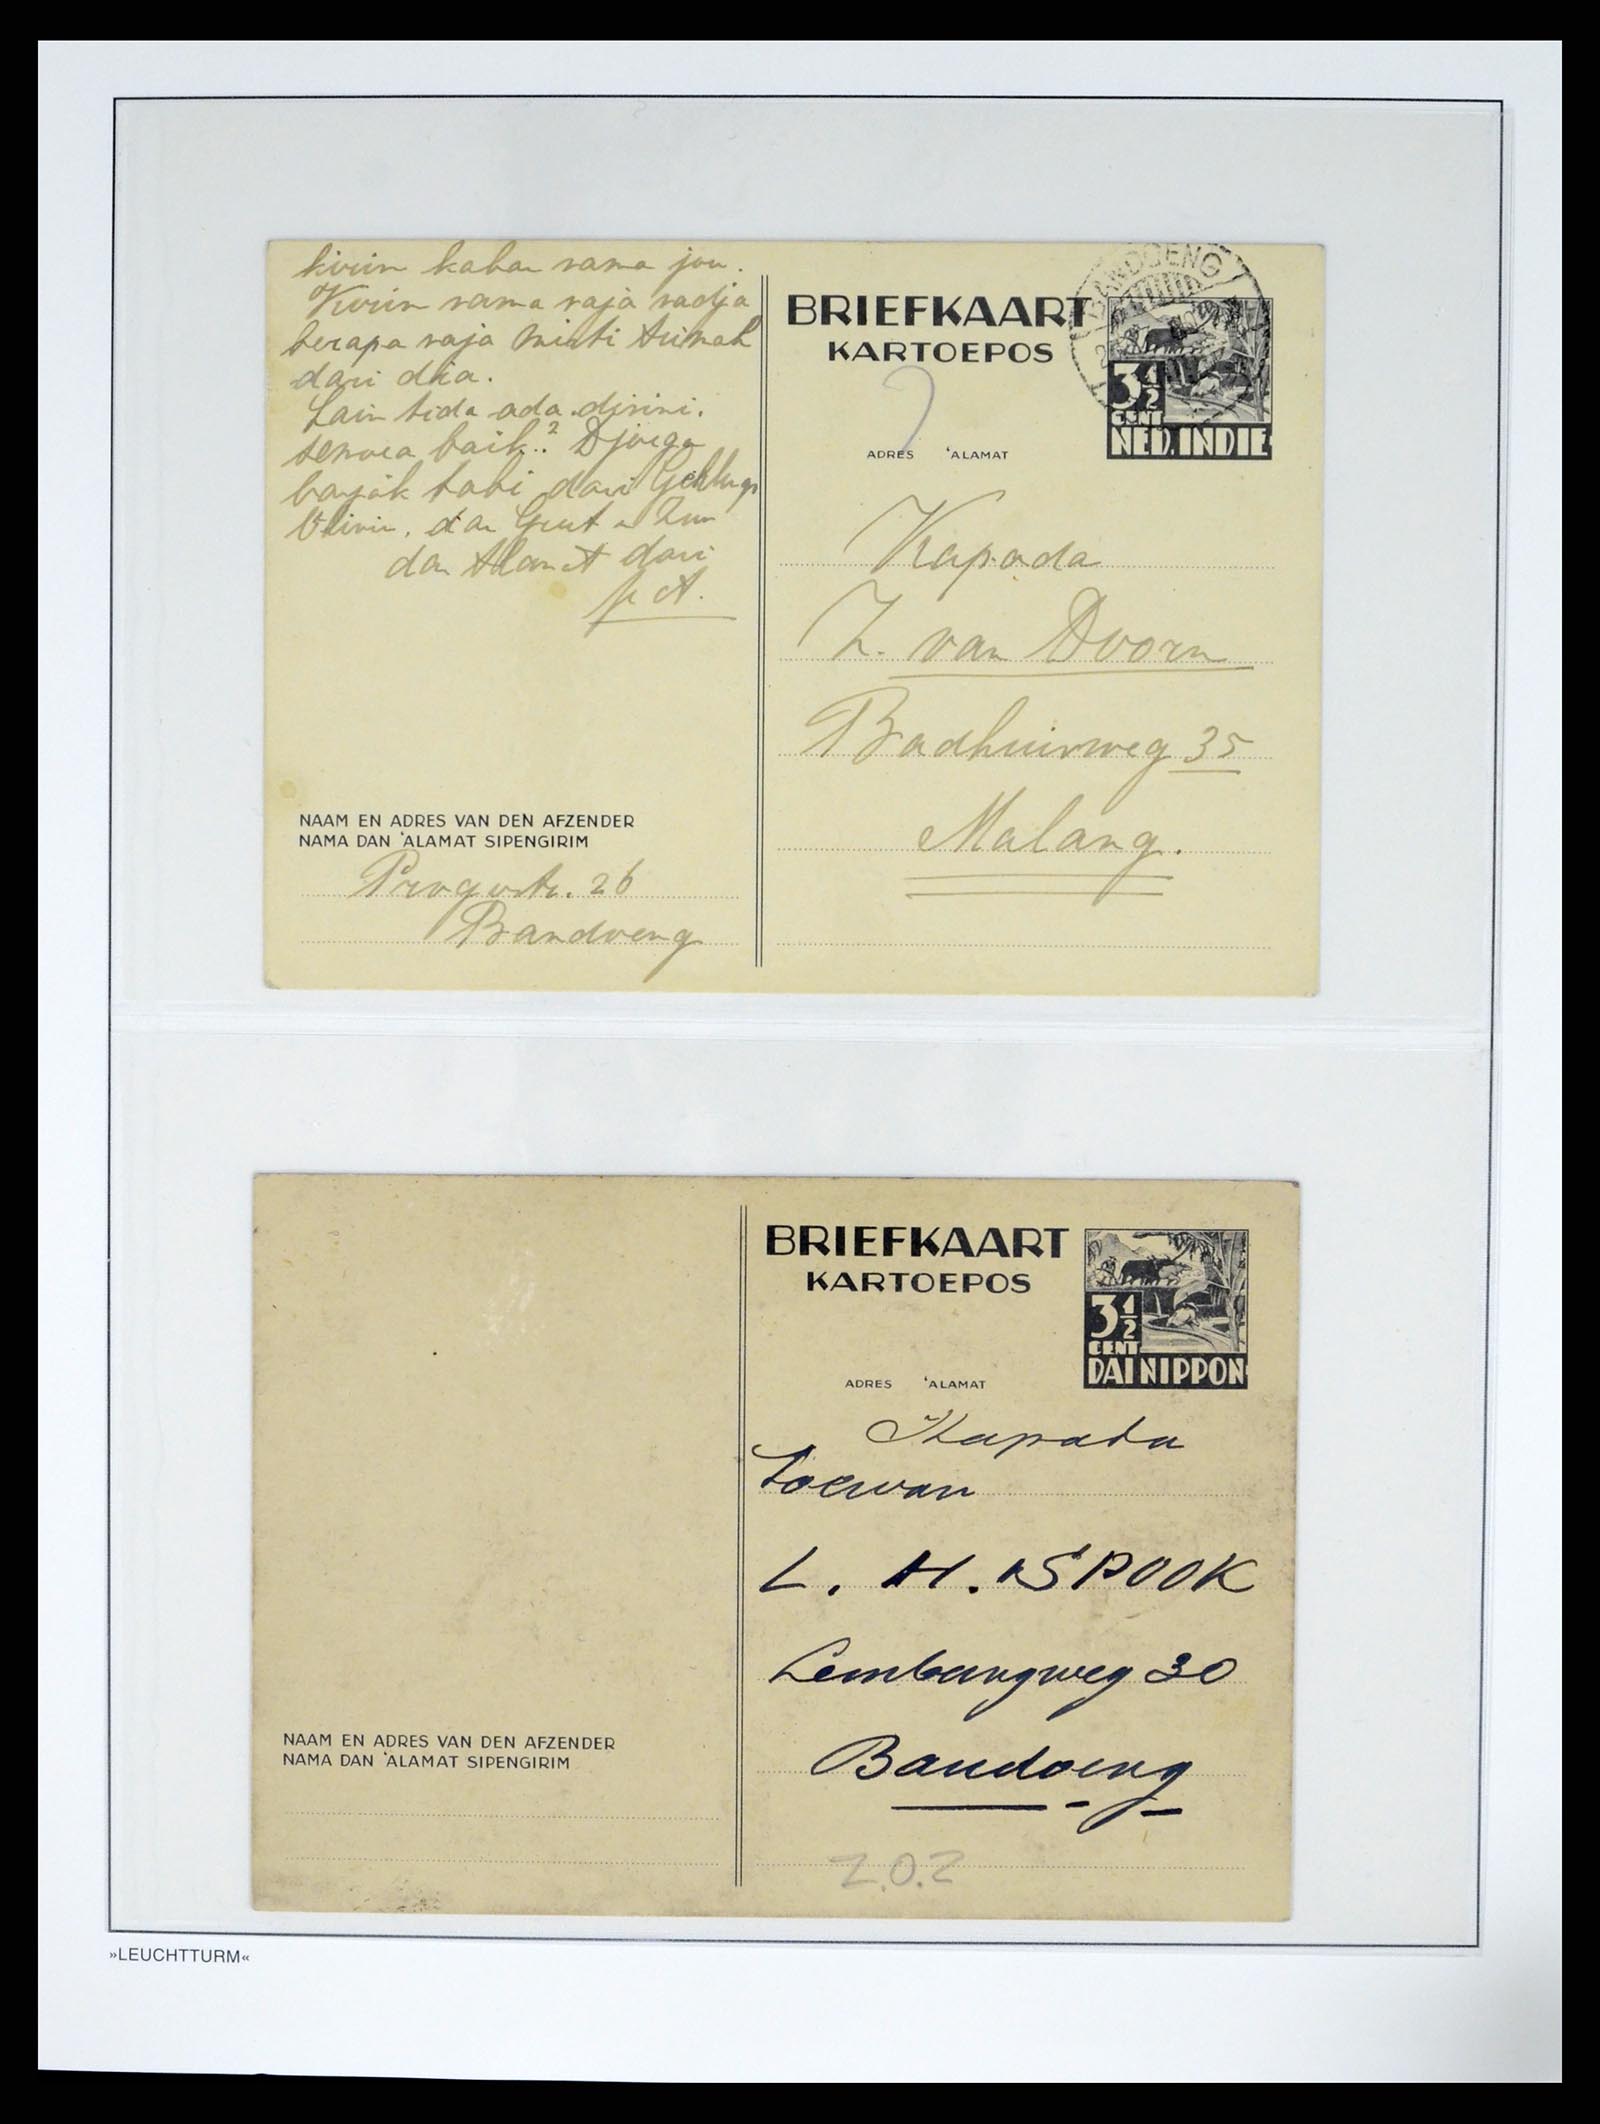 kirim kabar sama jou.
Kirim sama saja sadja
berapa saja misti trimah
dari dia.
Lain tida ada disini.
semoea baik..? Djoega
banjak tabi dari
dan Gust
dan slamat dari
BRIEFKAART
KARTOEPOS
BANDOENG
3½
CENT
NED. INDIE
ADRES 'ALAMAT
Kapada
Z. van Doorn
Badhuisweg 35
Malang.
NAAM EN ADRES VAN DEN AFZENDER
NAMA DAN 'ALAMAT SIPENGIRIM
Progostr. 26
Bandoeng
BRIEFKAART
KARTOEPOS
3½
CENT
DAI NIPPON
ADRES 'ALAMAT
Kapada
toewan
L. H. SPOOK
Lembangweg 30
Bandoeng
Z.O.Z
NAAM EN ADRES VAN DEN AFZENDER
NAMA DAN 'ALAMAT SIPENGIRIM
»LEUCHTTURM«